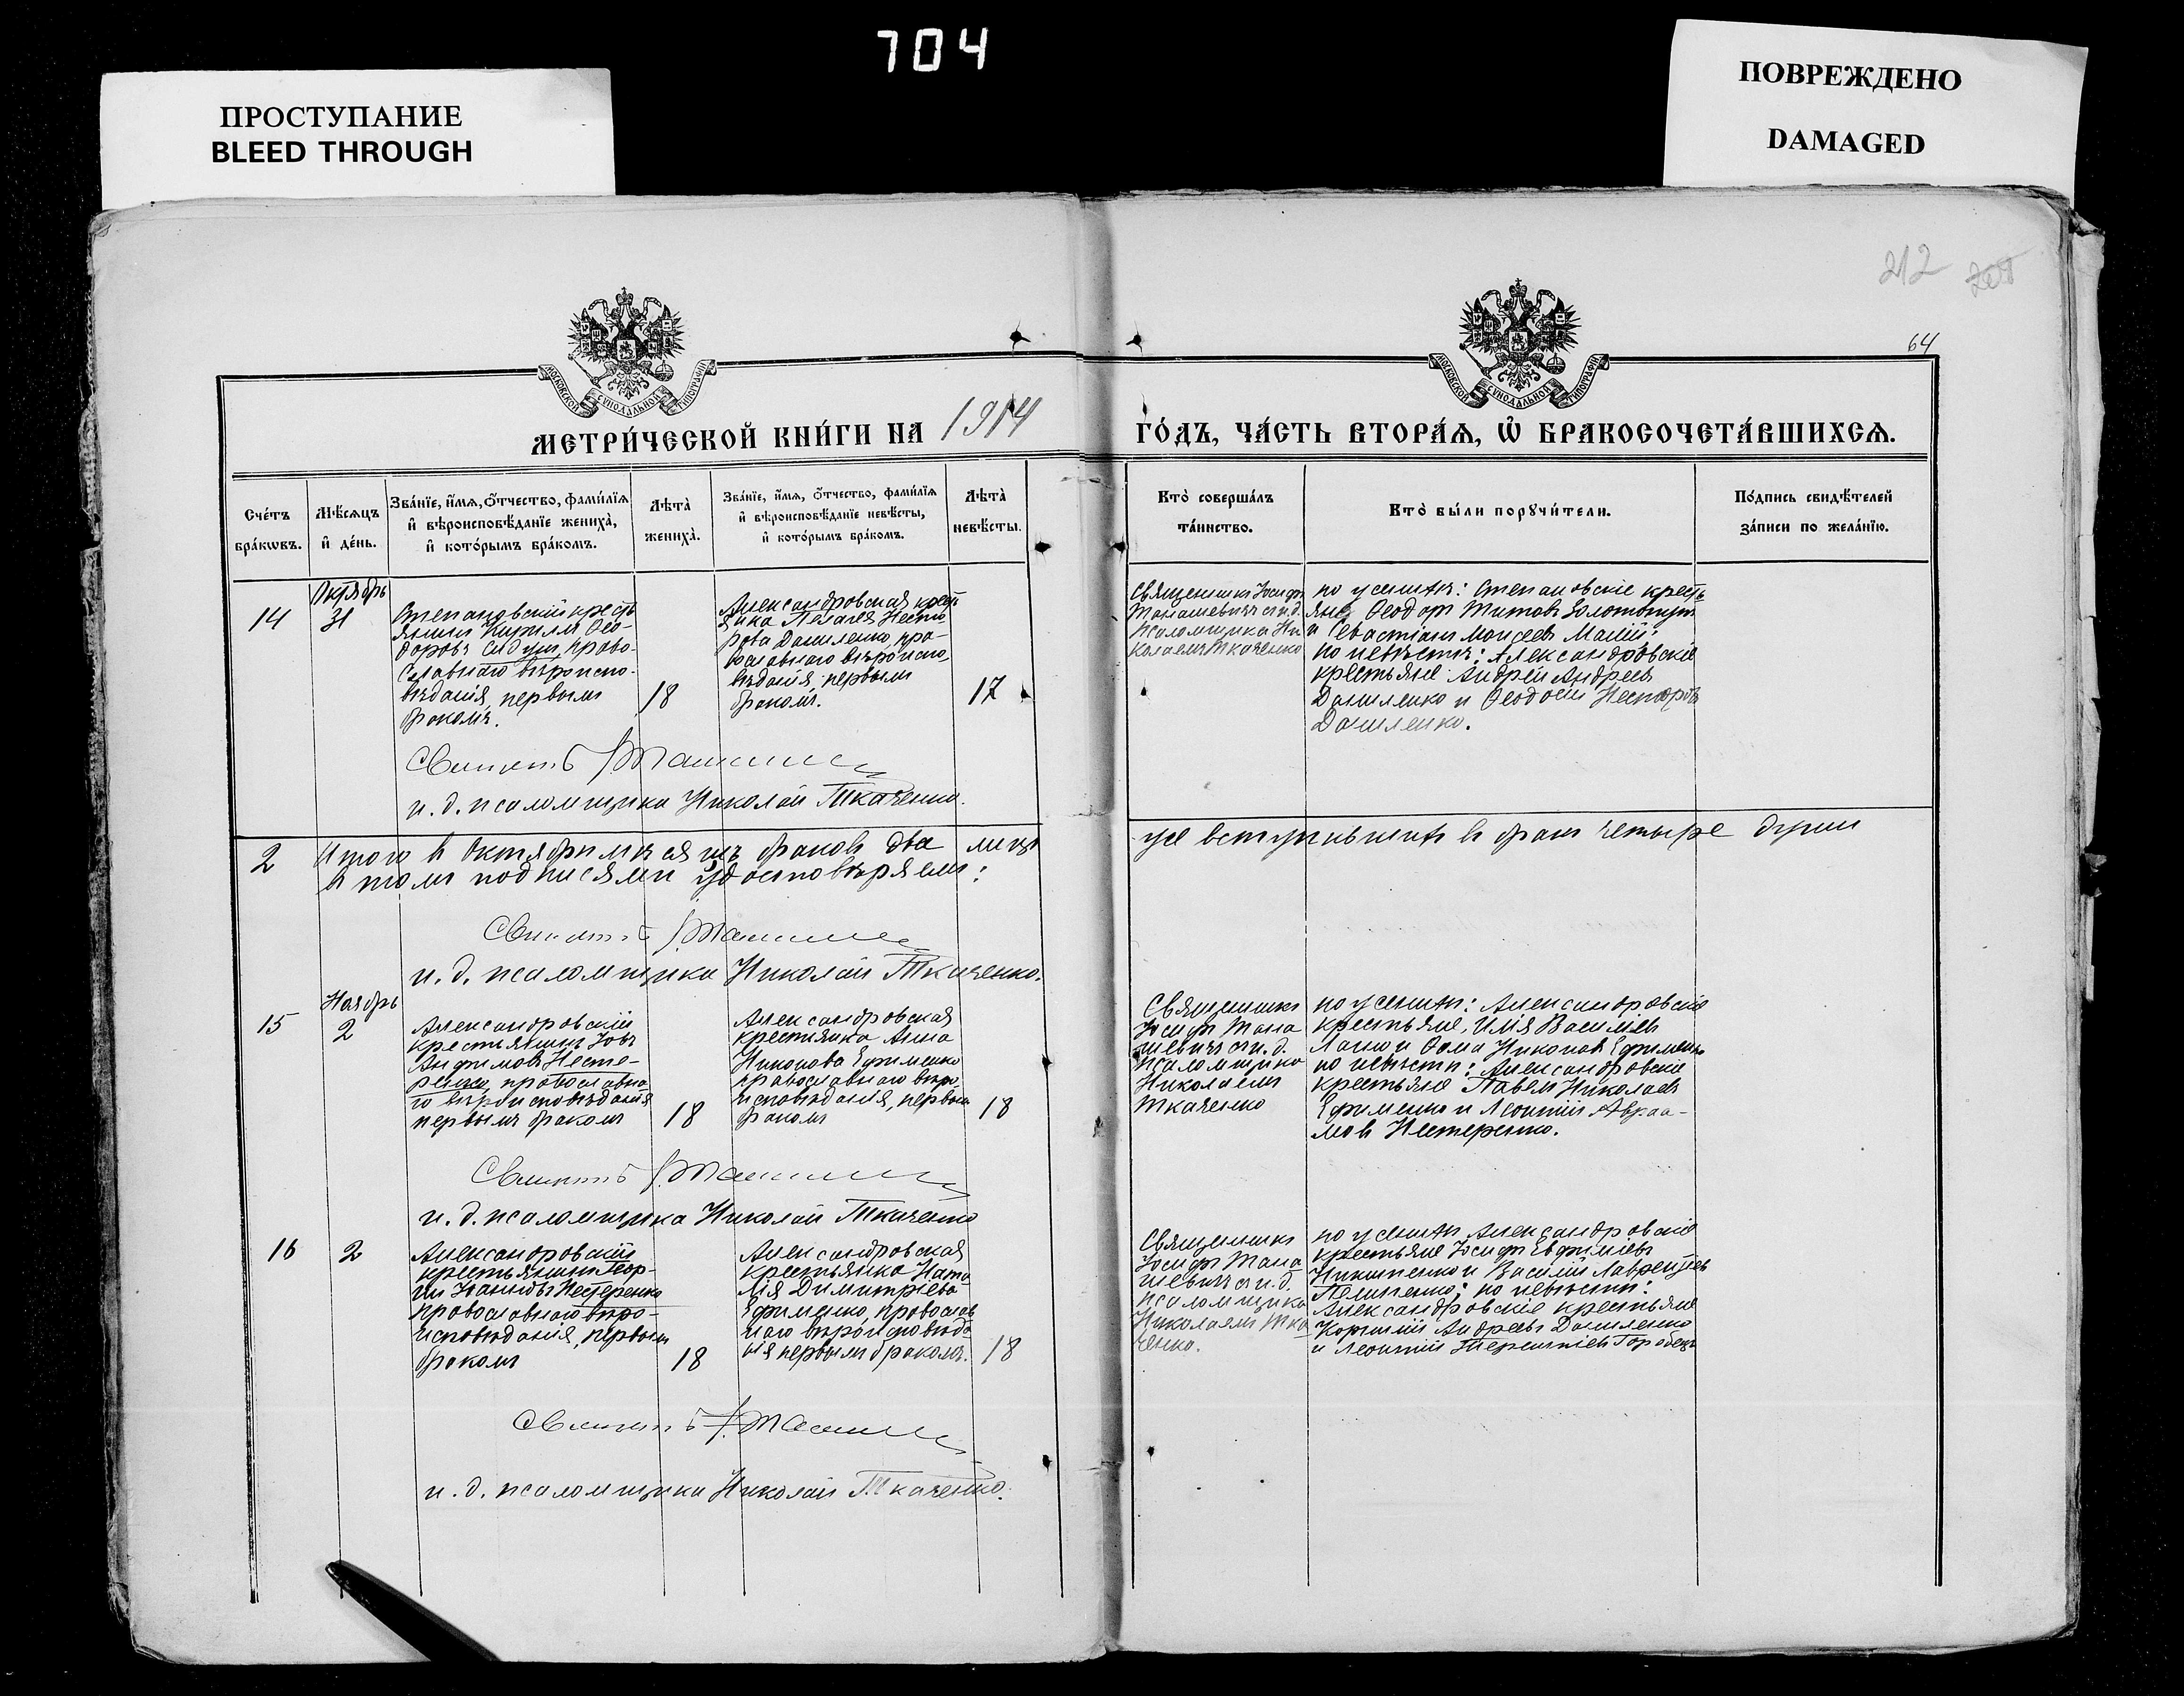 704
ПРОСТУПАНИЕ
BLEED THROUGH
ПОВРЕЖДЕНО
DAMAGED
212
64
МОСКОВСКОЙ СѴНОДАЛЬНОЙ ТИПОГРАФІИ
МОСКОВСКОЙ СѴНОДАЛЬНОЙ ТИПОГРАФІИ
МЕТРИ́ЧЕСКОЙ КНИ́ГИ НА 1914
ГО́ДЪ, ЧА́СТЬ ВТОРА́Ѧ, Ѽ БРАКОСОЧЕТА́ВШИХСѦ.
Сче́тъ
бра́кωвъ.
Мѣ́сѧцъ
и҆ де́нь.
Зва́нїе, и҆́мѧ, ѻ҆́тчество, фами́лїѧ
и҆ вѣроисповѣ́данїе жениха̀,
и҆ кото́рымъ бра́комъ.
Лѣ́та̀
жениха̀.
Зва́нїе, и҆́мѧ, ѻ҆́тчество, фами́лїѧ
и҆ вѣроисповѣ́данїе невѣ́сты,
и҆ кото́рымъ бра́комъ.
Лѣ́та̀
невѣ́сты.
Кто̀ соверша́лъ
та́инство.
Кто̀ бы́ли порꙋчи́тели.
По́дпись свидѣ́телей
за́писи по жела́нїю.
14
Октябрь
31
Степановскій кресть
янинъ Кириллъ Ѳео-
доровъ право-
славнаго вѣроиспо-
вѣданія, первымъ
бракомъ.
18
Александровская крест
янка Пелагея Несто
рова Даниленко, пра-
вославнаго вѣроиспо
вѣданія, первымъ
бракомъ.
17
Священникъ Іосифъ
Манашевичъ съ и.д.
псаломщика Ни
колаемъ Ткаченко
по женихѣ: Степановскіе кресть
яне Ѳеодоръ Титовъ
и Севастіанъ Моисеевъ Малій;
по невѣстѣ: Александровскіе
крестьяне Андрей Андреевъ
Даниленко и Ѳеодосій Несторовъ
Даниленко.
и. д. псаломщика Николай Ткаченко.
2
Итого въ Октябрѣ мѣсяцѣ браковъ два лицъ
же вступившихъ въ бракъ четыре души
въ томъ подписями удостовѣряемъ:
и. д. псаломщика Николай Ткаченко.
15
Ноябрь
2
Александровскій
крестьянинъ Іовъ
Анѳимовъ Несте-
ренко, православна
го вѣроисповѣданія
первымъ бракомъ
18
Александровская
крестьянка Анна
Никонова Ефименко
православнаго вѣро
исповѣданія, первым
бракомъ
18
Священникъ
Іосифъ Мана
шевичъ съ и.д.
псаломщика
Николаемъ
Ткаченко
по женихѣ: Александровскіе
крестьяне, Илія Василіевъ
и Ѳома Никоновъ Ефименко
по невѣстѣ: Александровскіе
крестьяне Павелъ Николаевъ
Ефименко и Леонтій Авраа-
мовъ Нестеренко.
и. д. псаломщика Николай Ткаченко
16
2
Александровскій
крестьянинъ Геор-
гій Іоанновъ Нестеренко
православнаго вѣро-
исповѣданія, первымъ
бракомъ
18
Александровская
крестьянка Ната
лія Димитріева
Ефименко, православ
наго вѣроисповѣда
нія первымъ бракомъ.
18
Священникъ
Іосифъ Мана
шевичъ съ и.д.
псаломщика
Николаемъ Тка
ченко.
по женихѣ Александровскіе
крестьяне Іосифъ Евфиміевъ
и Василій Лаврентіевъ
по невѣстѣ:
Александровскіе крестьяне
Корнилій Андреевъ Даниленко
и Леонтій Терентіевъ Горобецъ
и. д. псаломщика Николай Ткаченко.